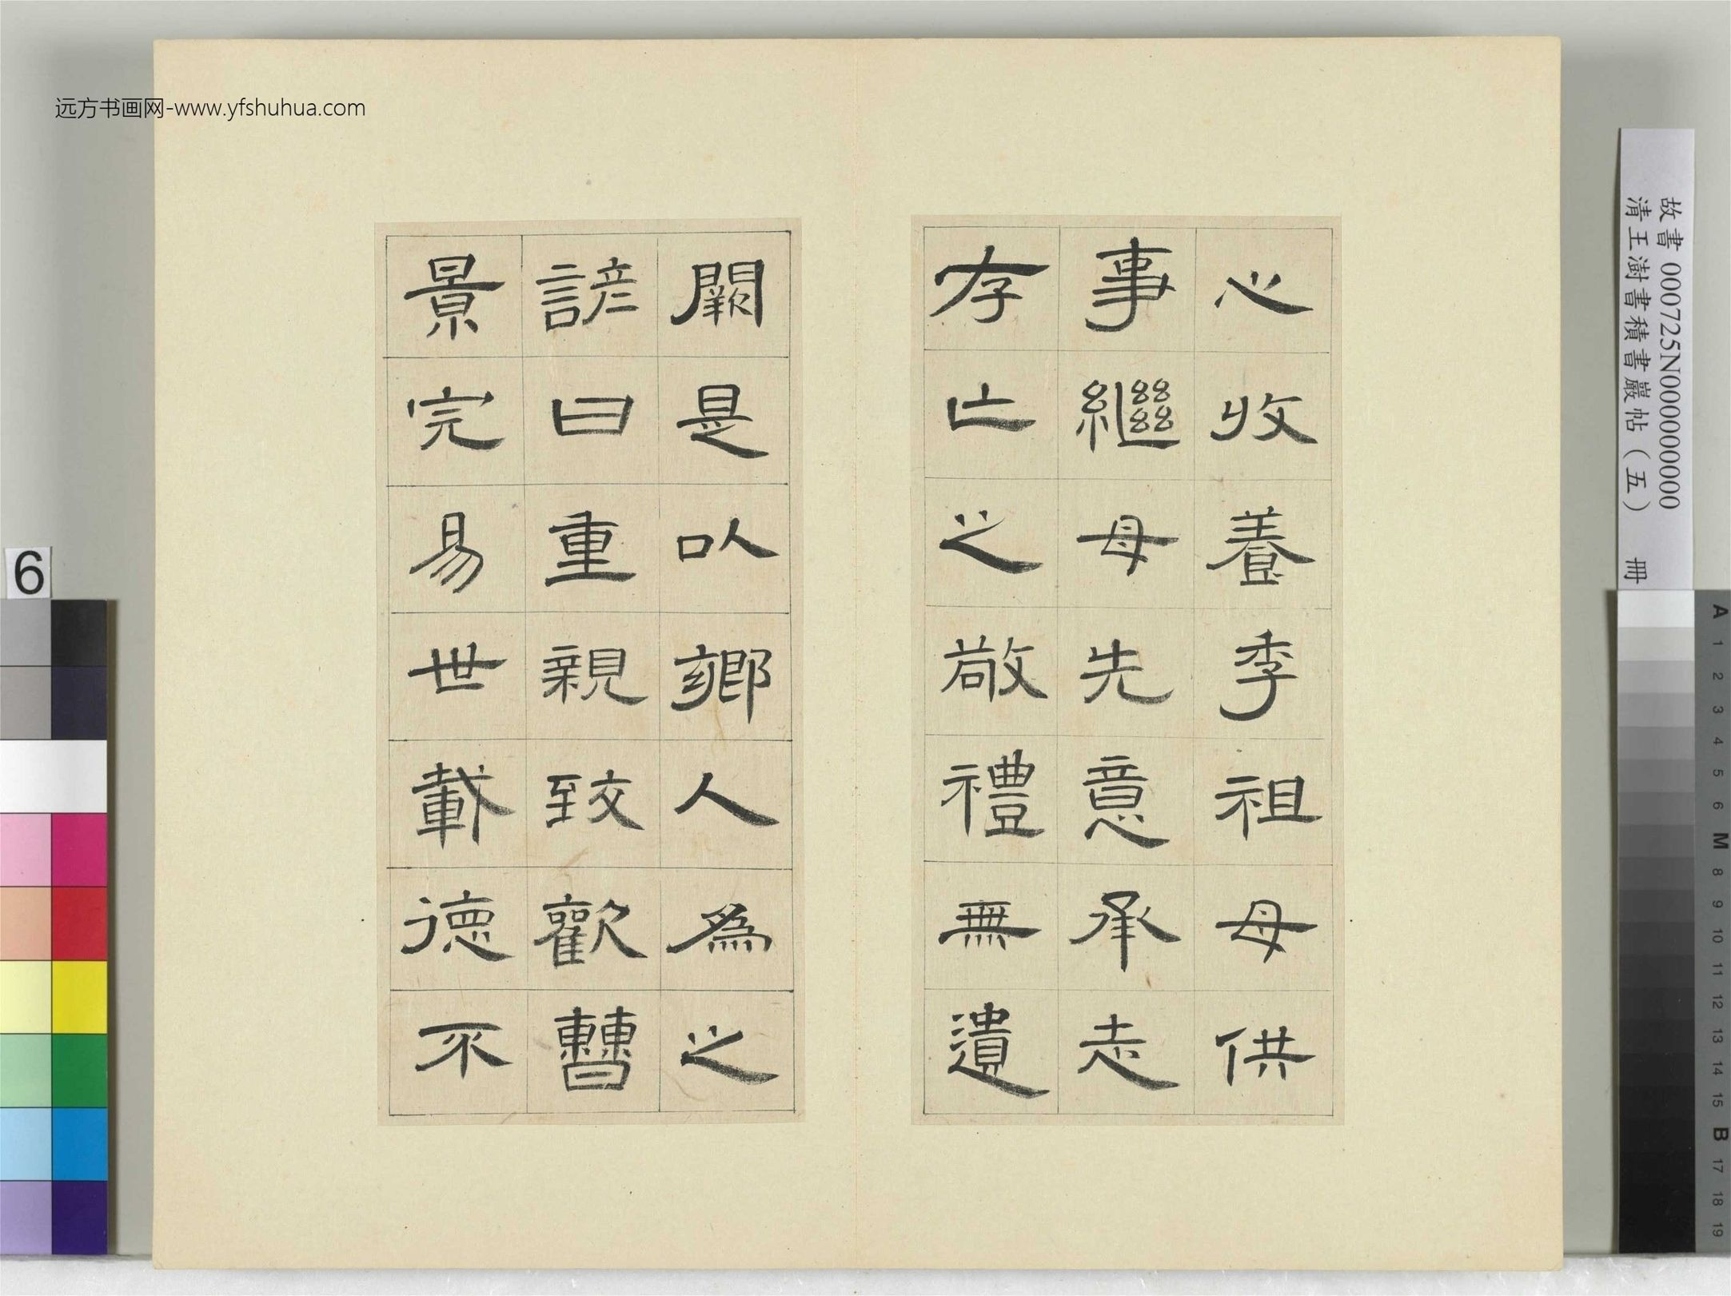 远方书画网-www.yfshuhua.com
心收養季祖母供
事繼母先意承志
存亡之敬禮無遺
闕是以鄉人為之
諺曰重親致歡曹
景完易世載德不
故書 000725N000000000
清王澍書積書巖帖（五） 冊
6
A
1
2
3
4
5
6
M
8
9
10
11
12
13
14
15
B
17
18
19